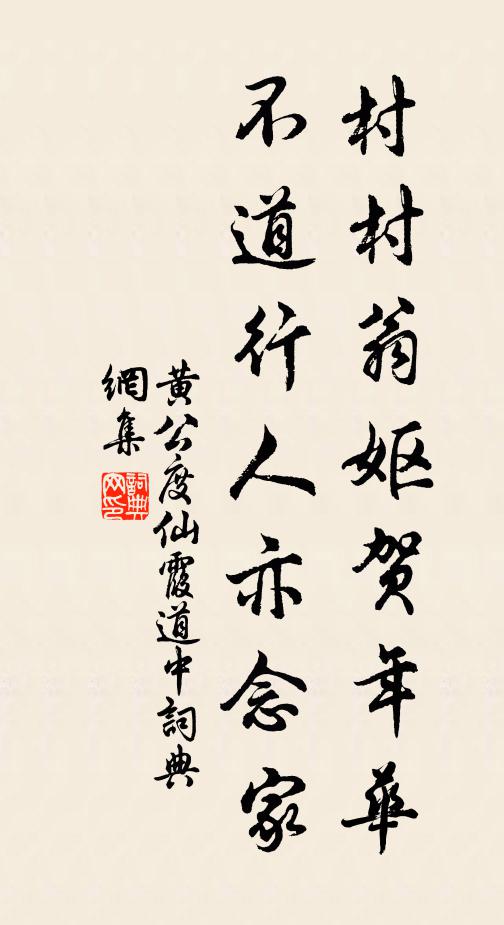 村村翁妪贺年华
不道行人亦念家
黄公度仙霞道中詞典
網集
詞典网印